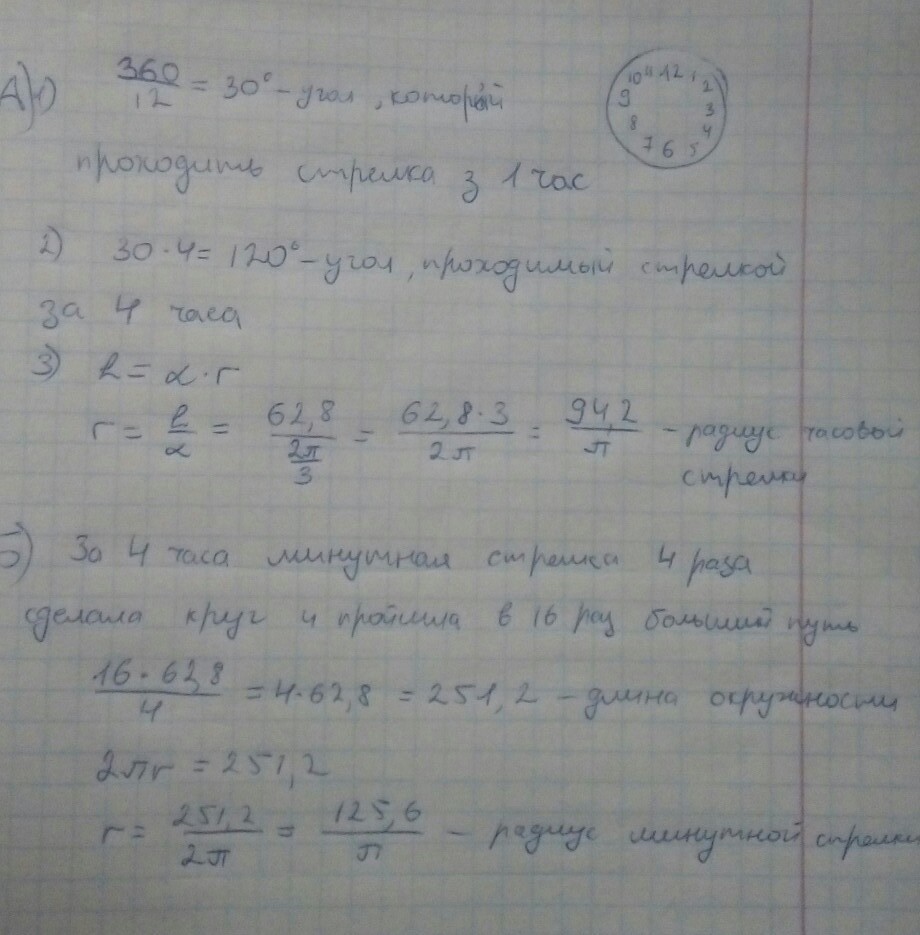 А)1) 360/12 = 30° – угол, который
10 11 12 1 2 9 3 8 4 7 6 5
проходить стрелка з 1 час
2) 30·4 = 120° – угол, проходимый стрелкой
за 4 часа
3) ℓ = α·r
r = ℓ/α = 62,8/(2π/3) = 62,8·3/2π = 94,2/π – радиус часовый
стрелки
Б) За 4 часа минутная стрелка 4 раза
сделала круг и пройшла в 16 раз больший путь
16·62,8/4 = 4·62,8 = 251,2 – длина окружности
2πr = 251,2
r = 251,2/2π = 125,6/π – радиус минутной стрелки